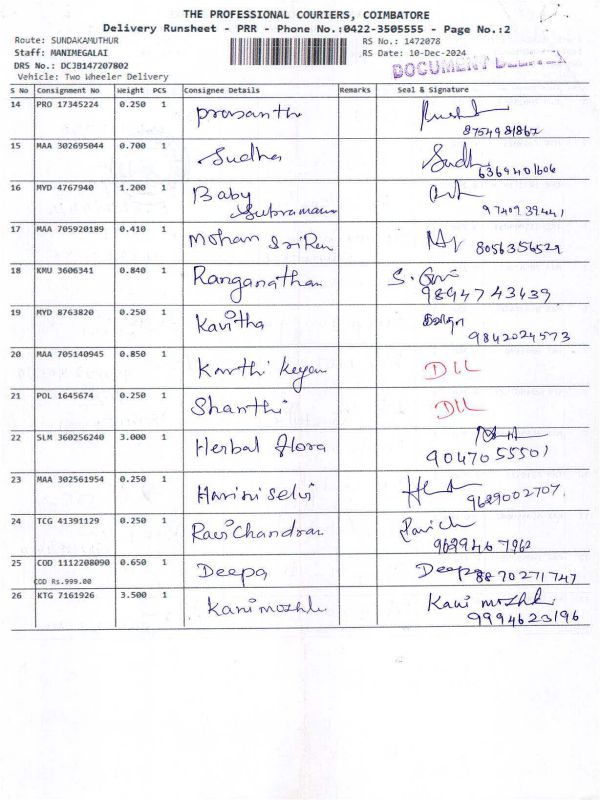 THE PROFESSIONAL COURIERS, COIMBATORE
Delivery Runsheet - PRR - Phone No.:0422-3505555 - Page No.:2
Route: SUNDAKAMUTHUR RS No.: 1472078
Staff: MANIMEGALAI RS Date: 10-Dec-2024
DRS No.: DCJB147207802 DOCUMENT
Vehicle: Two Wheeler Delivery
S No Consignment No Weight PCS Consignee Details Remarks Seal & Signature
14 PRO 17345224 0.250 1 prasanth
8754981867
15 MAA 302695044 0.700 1 Sudha Sudh
6369401606
16 MYD 4767940 1.200 1 Baby
Subramani 9740939441
17 MAA 705920189 0.410 1 Mohan Sri Ram 8056356529
18 KMU 3606341 0.840 1 Ranganathan S.
9894743439
19 MYD 8763820 0.250 1 Kavitha
9842024573
20 MAA 705140945 0.850 1 Karthi Keyan DIL
21 POL 1645674 0.250 1 Shanthi DIL
22 SLM 360256240 3.000 1 Herbal flora
9047055501
23 MAA 302561954 0.250 1 Harini selvi
9629002707
24 TCG 41391129 0.250 1 Ravi Chandran
9699467962
25 COD 1112208090 0.650 1 Deepa Deepa 8870271747
COD Rs.999.00
26 KTG 7161926 3.500 1 Kani mozhi Kani mozhi
9994623196